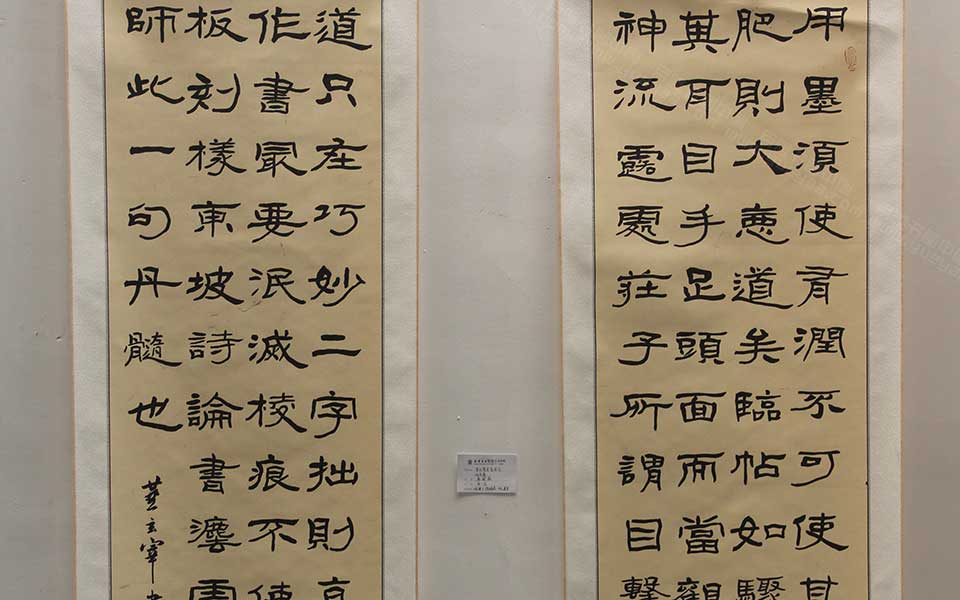 用墨須使有潤不可使其
肥則大惡道矣臨帖如驟
其耳目手足頭面而當觀
神流露處莊子所謂目擊
道只在巧妙二字拙則
作書最要泯滅棱痕不使
板刻樣東坡詩論書灋雲
師此一句丹髓也
董玄宰